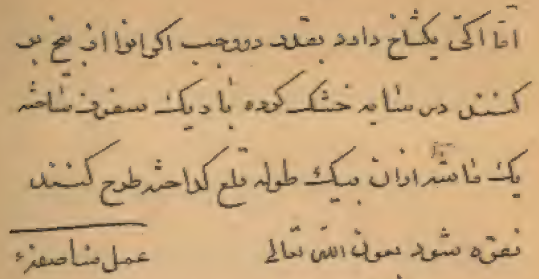 اما اکی یکشاخ دارد بقدر دووجب اکر انرا از بیخ بر
کنند در سایه خشک کرده باریک سفوف ساخته
یک ماشه ازان بیک طوله قلع کداخته طرح کنند
نقره شود بعون الله تعالی عمل مناصفه